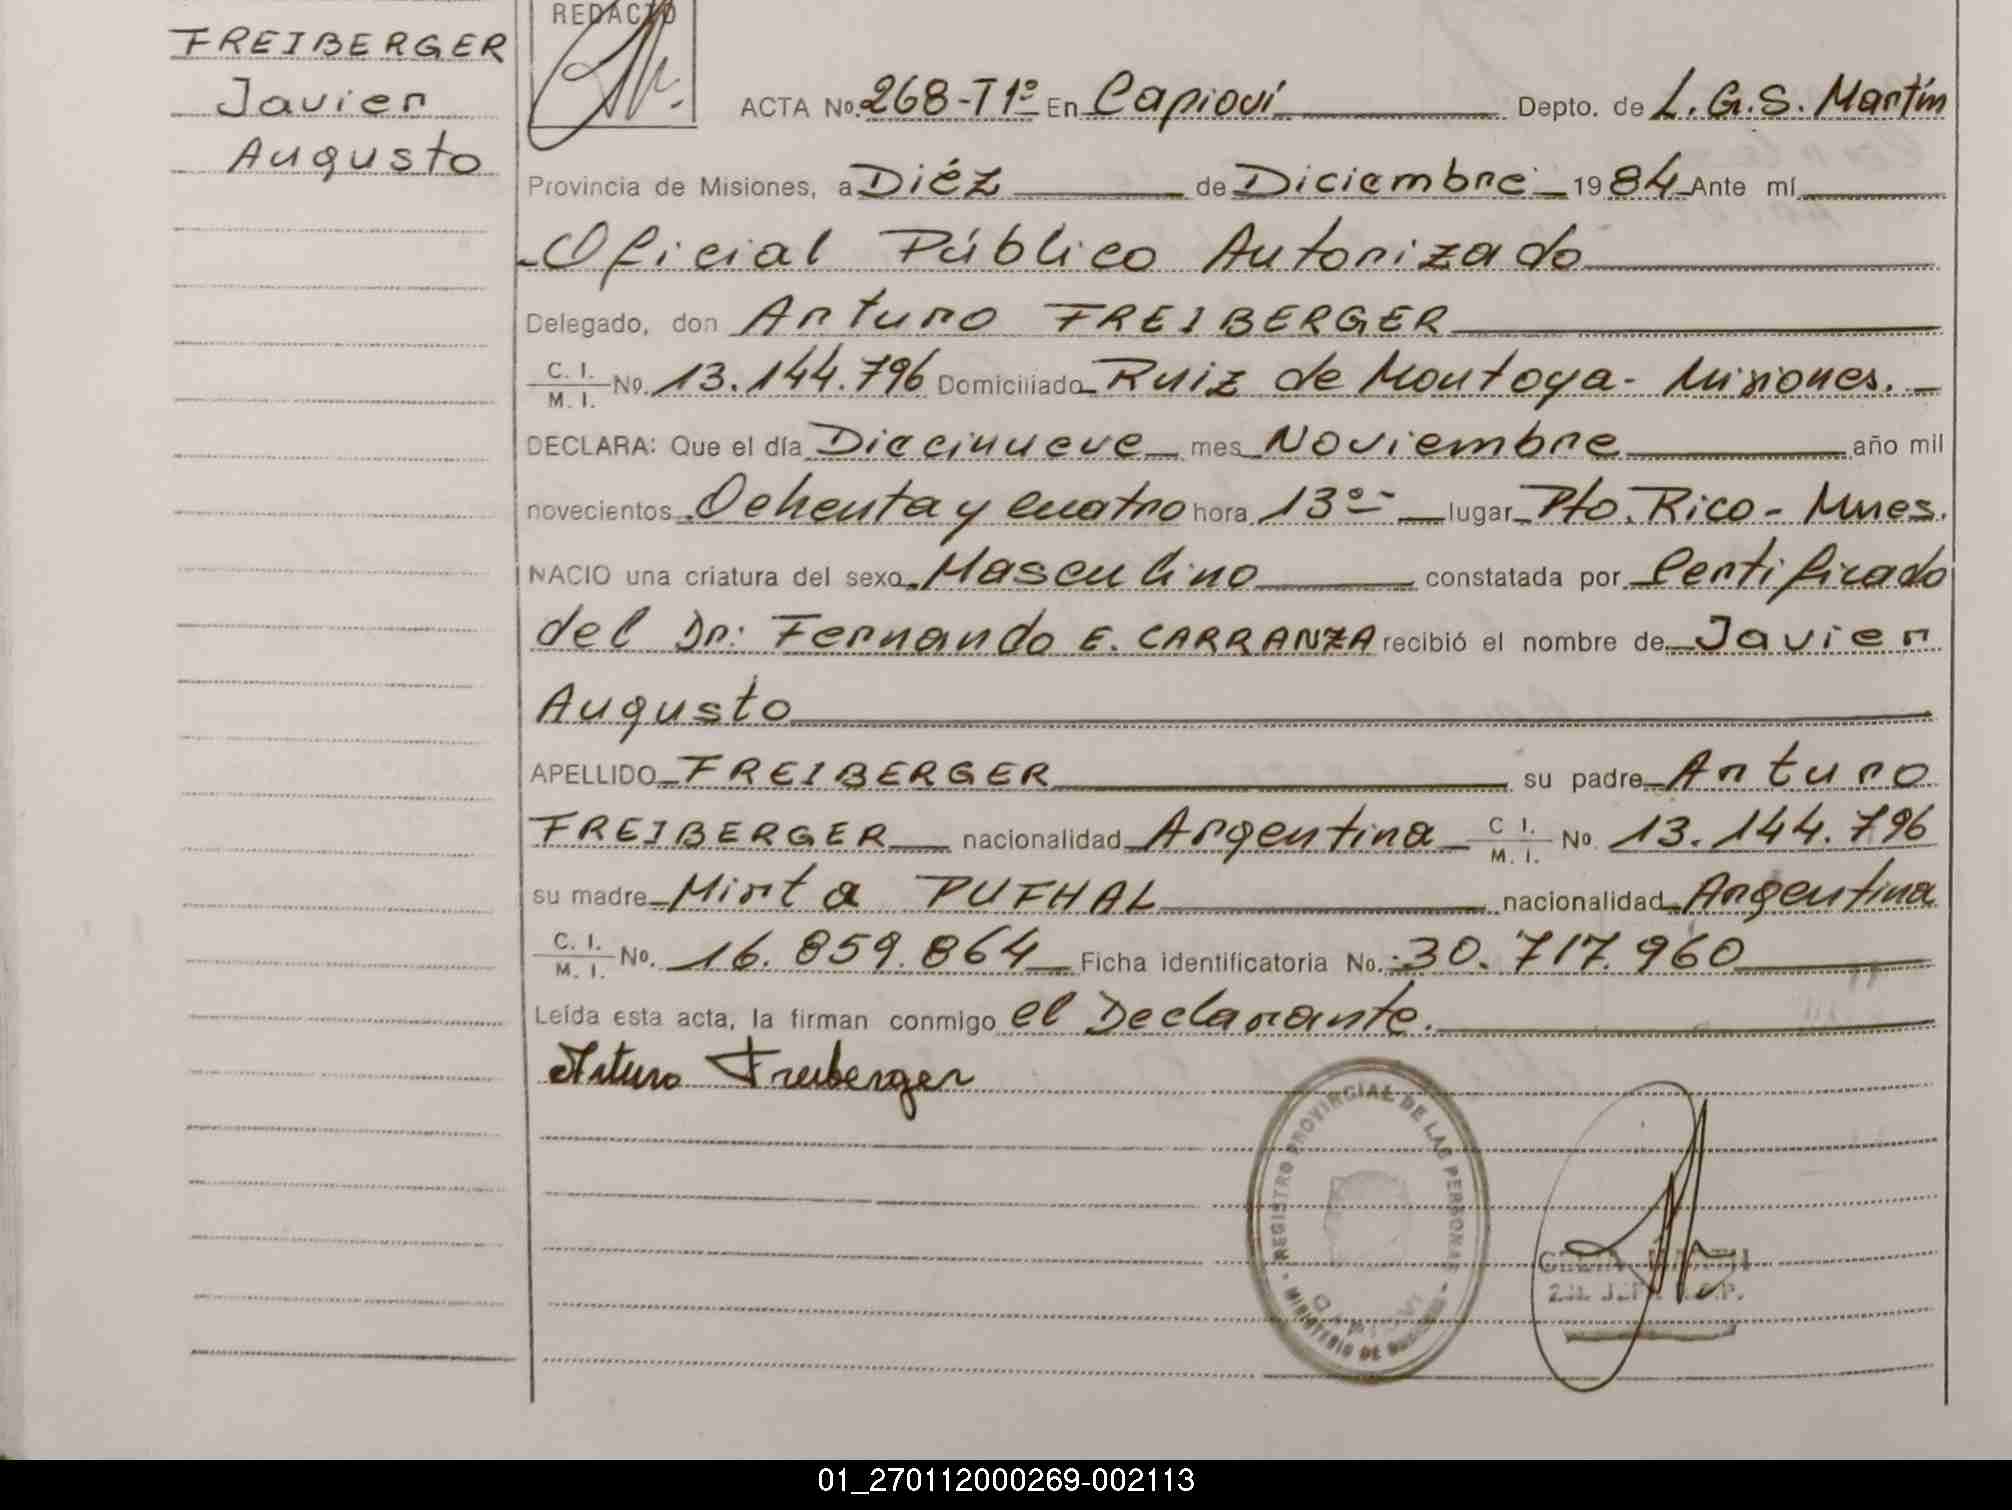 FREIBERGER
Javier
Augusto
REDACTO
ACTA No. 268-T1º En Capioví Depto. de L.G.S. Martín
Provincia de Misiones, a Diéz de Diciembre 1984 Ante mí
Oficial Público Autorizado
Delegado, don Arturo FREIBERGER
C. I. / M. I. No. 13.144.796 Domiciliado Ruiz de Montoya - Misiones.
DECLARA: Que el día Diecinueve mes Noviembre año mil
novecientos Ochenta y cuatro hora 13º- lugar Pto. Rico - Mnes.
NACIO una criatura del sexo Masculino constatada por Certificado
del Dr: Fernando E. CARRANZA recibió el nombre de Javier
Augusto
APELLIDO FREIBERGER su padre Arturo
FREIBERGER nacionalidad Argentina C I. / M. I. No. 13.144.796
su madre Mirta PUFHAL nacionalidad Argentina
C. I. / M. I. No. 16.859.864 Ficha identificatoria No. 30.717.960
Leída esta acta, la firman conmigo el Declarante.
Arturo Freiberger
REGISTRO PROVINCIAL DE LAS PERSONAS - MINISTERIO DE GOBIERNO -
CAPIOVI
01_270112000269-002113